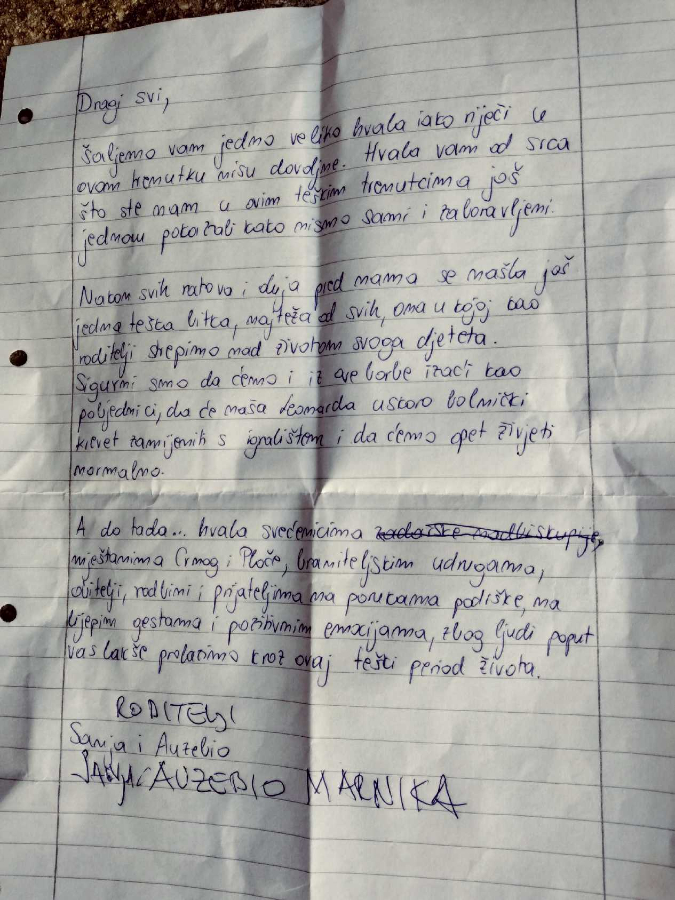 Dragi svi,
Šaljemo vam jedno veliko hvala iako riječi u
ovom trenutku nisu dovoljne. Hvala vam od srca
što ste nam u ovim teškim trenutcima još
jednom pokazali kako nismo sami i zaboravljeni.
Nakon svih ratova i oluja pred nama se našla još
jedna teška bitka, najteža od svih, ona u kojoj kao
roditelji strepimo nad životom svoga djeteta.
Sigurni smo da ćemo i iz ove borbe izaći kao
pobjednici, da će naša Leonarda uskoro bolnički
krevet zamijeniti s igralištem i da ćemo opet živjeti
normalno.
A do tada... hvala svećenicima zadarske nadbiskupije,
mještanima Crnog i Ploče, braniteljskim udrugama,
obitelji, rodbini i prijateljima na porukama podrške, na
lijepim gestama i pozitivnim emocijama, zbog ljudi poput
vas lakše prolazimo kroz ovaj teški period života.
RODITELJI
Sanja i Auzebio
SANJA i AUZEBIO MARNIKA